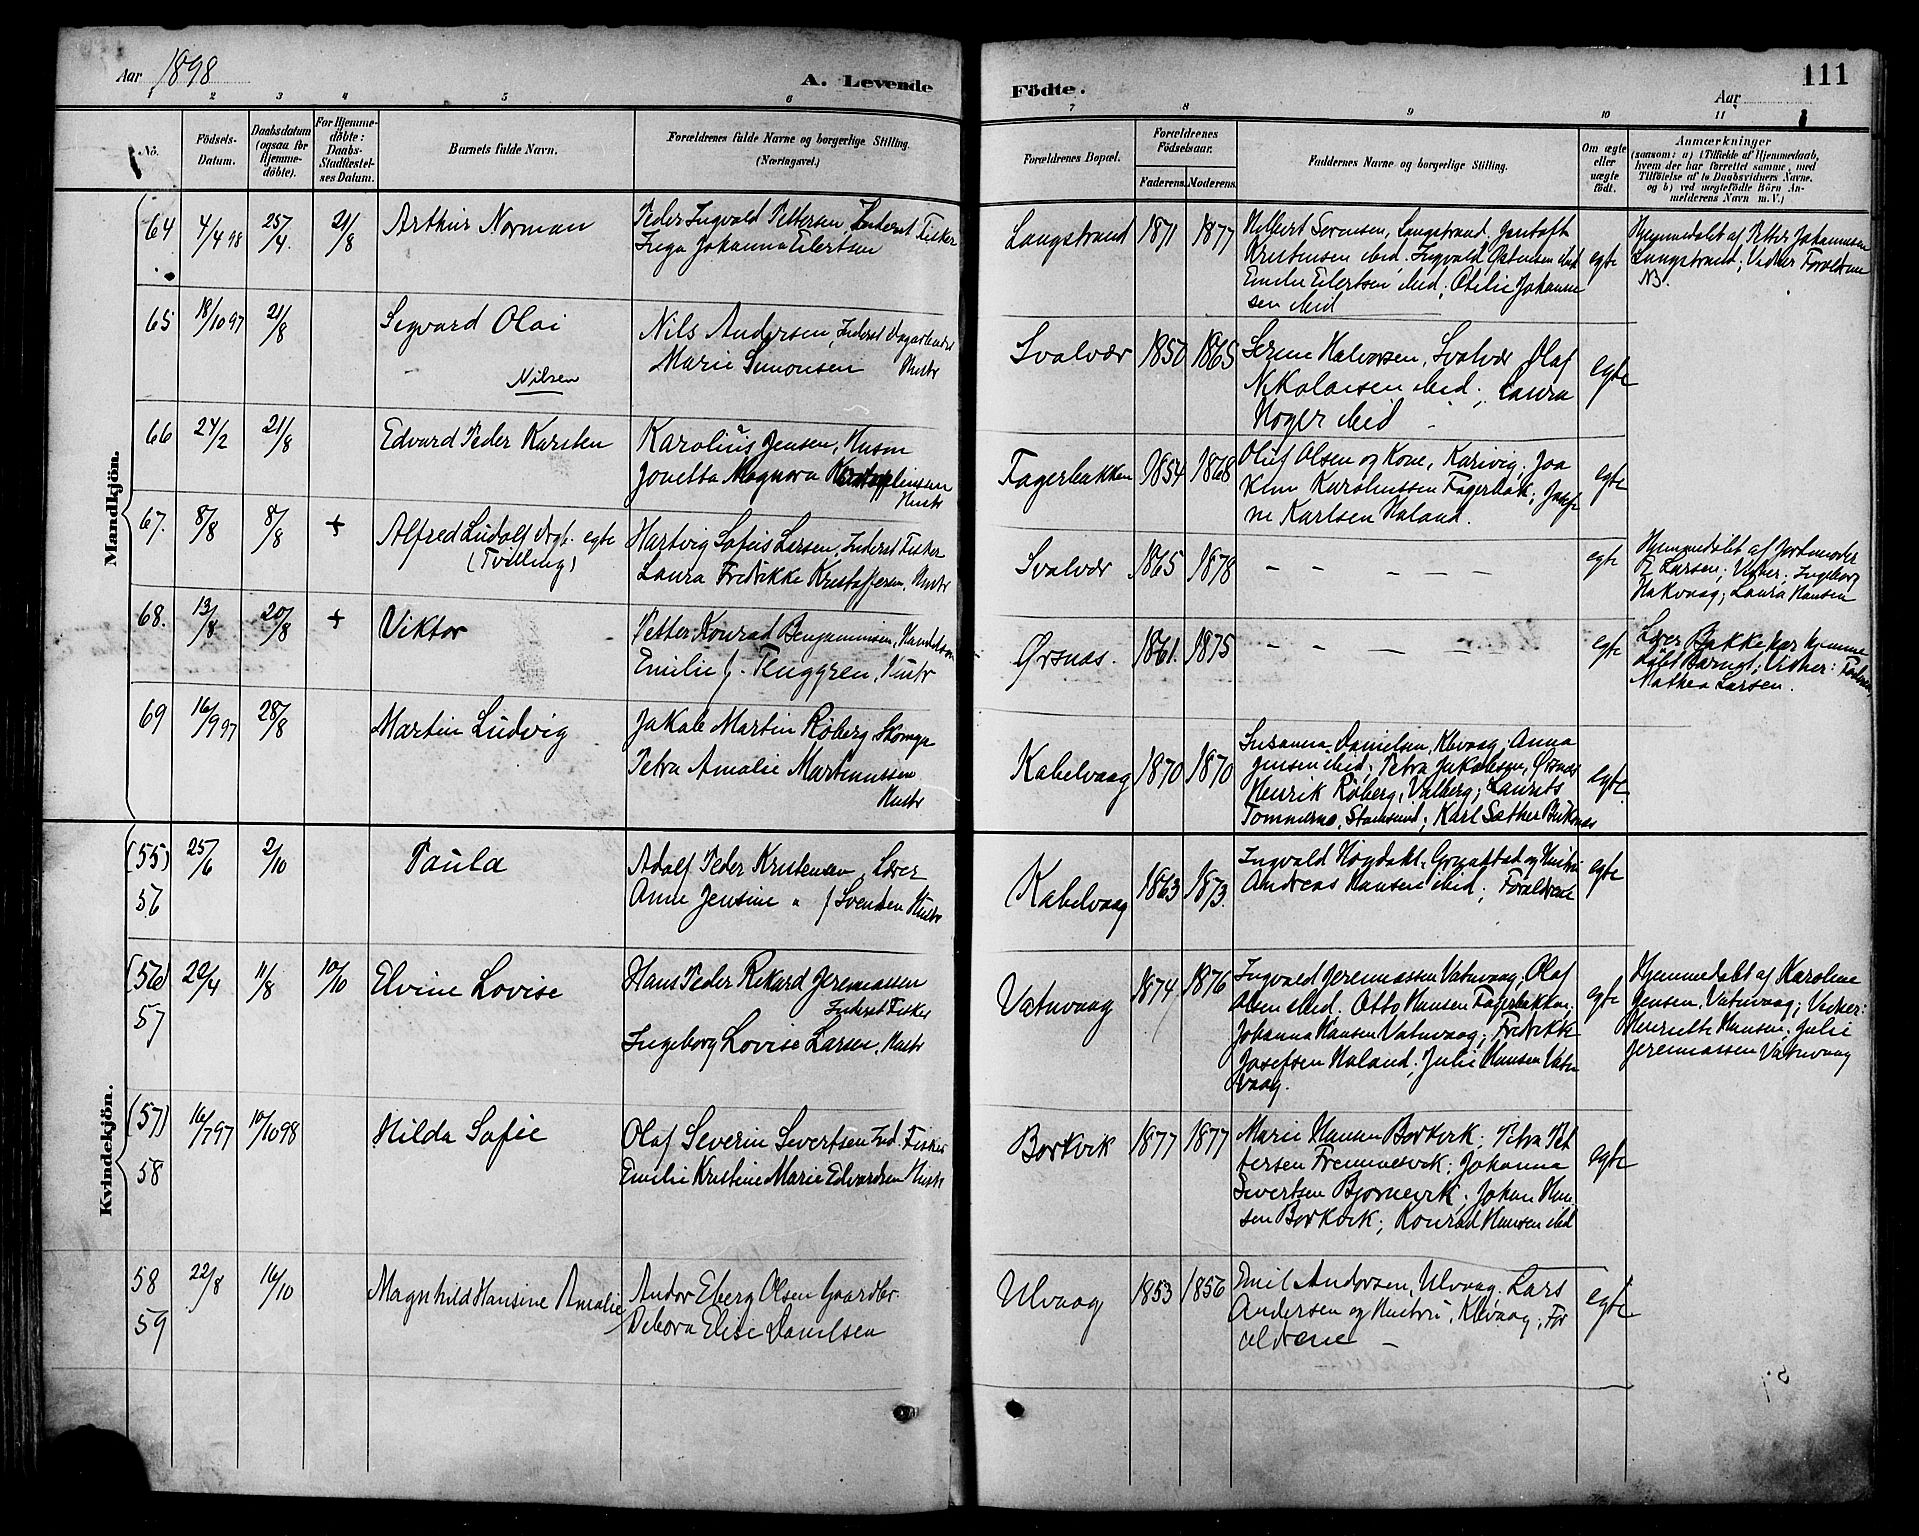 Aar 1898
A. Levende Födte.
111
Aar
1 2 3 4 5 6 7 8 9 10 11
No.
Födsels-
Datum.
Daabsdatum
(ogsaa for
Hjemme-
döbte).
For Hjemme-
döbte:
Daabs-
Stadfæstel-
ses Datum.
Barnets fulde Navn.
Forældrenes fulde Navne og borgerlige Stilling.
(Næringsvei.)
Forældrenes Bopæl.
Forældrenes
Födselsaar.
Faderens. Moderens.
Faddernes Navne og borgerlige Stilling.
Om ægte
eller
uægte
født.
Anmærkninger
(saasom: a) i Tilfælde af Hjemmedaab,
hvem der har forrettet samme, med
Tilföielse af to Daabsvidners Navne,
og b) ved uægtefödte Börn An-
melderens Navn m. V.)
Mandkjön.
64 4/4 98 25/4. 21/8 Arthur Norman
Peder Ingvald Pettersen, Inderst Fisker
Inga Johanna Eilertsen
Langstrand 1871 1877
Kristensen ibid. Ingvald
Emilie Eilertsen ibid; Otilie Johanne
sen ibid
egte
Hjemmedøbt af Petter Johannesen
Langstrand; Vidner Forældrene
NB.
65 18/10 97 21/8 Sigvard Olai
Nilsen
Nils Andersen, Inderst Dagarbeider
Marie Simonsen Hustr
Svolvær 1850 1865
Halvorsen, Svolvær Olaf
Nikolaisen ibid; Laura
Hoger ibid
egte
66 24/2 21/8 Edvard Peder Karsten
Karolius Jensen, Husm
Jonetta Magnora
Hustr
Fagerbakken 1854 1868
Oluf Olsen og Kone, Karivig; Joa
kim Karoliussen Fagerbak; Josefi
ne Karlsen Holand.
egte
67. 8/8 8/8 + Alfred Ludolf egte
(Tvilling)
Hartvig Sofus Larsen, Inderst Fisker
Laura Fredrikke Kristoffersen, Hustr
Svolvær 1865 1878
– – – – –
egte
Hjemmedøbt af Jordmoder
Larsen; Vidner; Ingeborg
Hakvaag; Laura Hansen
68. 13/8 20/8 + Viktor
Petter Konrad Benjaminsen,
Emilie f. Tenggren, Hustr
Ørsnes. 1861. 1875
– – – – –
egte
Lærer Bakke har hjemme
døbt Barnet; Vidner:
Mathea Larsen.
69 16/9 97 28/8 Martin Ludvig
Jakob Martin Röberg
Petra Amalie Martinussen
Hustr
Kabelvaag 1870 1870
Susanna Danielsen, Klevaag. Anna
Jensen ibid; Petra Jakobsen, Ørsnes
Henrik Röberg, Valberg; Laurits
Tommernes, Stamsund; Karl Sæther
egte.
Kvindekjön.
(55)
56 25/6 2/10 Paula
Adolf Peder Kristensen Lærer
Anne Jensine " f Svendsen Hustr
Kabelvaag 1863 1873.
Ingvald Høgdahl, Grunstad og Hustru
Andreas Hansen ibid; Forældrene
egte
(56)
57 22/4 11/8 10/10 Elvine Lovise
Hans Peder Rikard Jeremiassen
Inderst Fisker
Ingeborg Lovise Larsen, Hustr
Vatnvaag 1874 1876
Ingvald Jeremiassen Vatnvaag; Olaf
Olsen ibid. Otto Hansen Fagerbakken;
Johanna Hansen Vatnvaag; Fredrikke
Josefsen Holand; Julie Hansen Vatn
vaag.
egte
Hjemmedøbt af Karoline
Jensen, Vatnvaag; Vidner:
Henriette Hansen; Julie
Jeremiassen Vatnvaag
(57)
58 16/7 97 10/10 98 Hilda Sofie
Olaf Severin Sivertsen Ind. Fisker
Emilie Kristine Marie Edvardsen Hustr
Borkvik 1877 1877
Marie Hansen Borkvik; Petra Pet
tersen Fremnesvik; Johanna
Sivertsen Bjørnevik; Johan Han
sen Borkvik; Konrad Hansen ibid
egte
58
59 22/8 16/10 Magnhild Hansine Amalie
Andor Eberg Olsen Gaardbr.
Debora Elise Danielsen
Ulvaag 1853 1856
Emil Andorsen, Ulvaag. Lars
Andersen og Hustru, Klevaag, For
ældrene –
egte